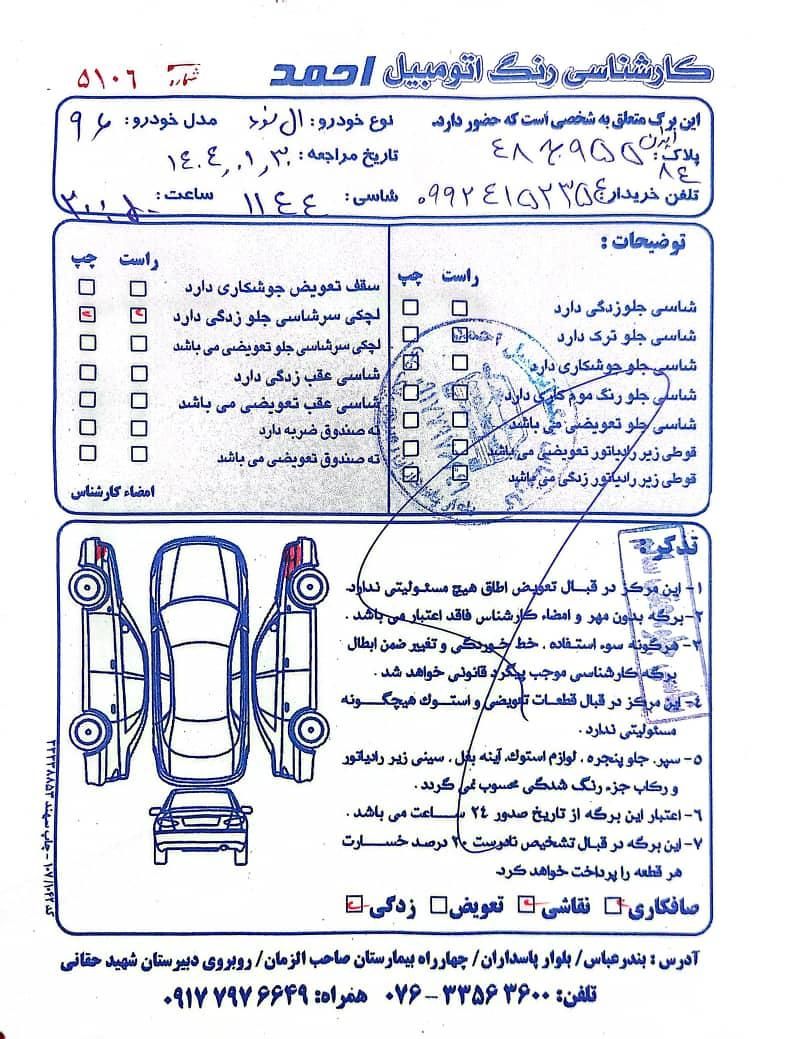 کارشناسی رنگ اتومبیل احمد
شماره ۵۱۰۶
این برگ متعلق به شخصی است که حضور دارد.
نوع خودرو: ال نود
مدل خودرو: ۹۶
پلاک: ایران ۸۴
تاریخ مراجعه: ۱۴۰۴,۰۱,۳۰
تلفن خریدار: ۰۹۹۲۴۱۵۲۳۵۴
شاسی: ۱۱۴۴
ساعت:
توضیحات:
راست چپ
شاسی جلوزدگی دارد
شاسی جلو ترک دارد
شاسی جلو جوشکاری دارد
شاسی جلو رنگ موم کاری دارد
شاسی جلو تعویضی می باشد
قوطی زیر رادیاتور تعویضی می باشد
قوطی زیر رادیاتور زدگی می باشد
راست چپ
سقف تعویض جوشکاری دارد
لچکی سرشاسی جلو زدگی دارد
لچکی سرشاسی جلو تعویضی می باشد
شاسی عقب زدگی دارد
شاسی عقب تعویضی می باشد
ته صندوق ضربه دارد
ته صندوق تعویضی می باشد
امضاء کارشناس
تذکر:
۱- این مرکز در قبال تعویض اطاق هیچ مسئولیتی ندارد.
۲- برگه بدون مهر و امضاء کارشناس فاقد اعتبار می باشد.
۳- هرگونه سوء استفاده، خط خوردگی و تغییر ضمن ابطال
برگه کارشناسی موجب پیگرد قانونی خواهد شد.
۴- این مرکز در قبال قطعات تعویضی و استوک هیچگونه
مسئولیتی ندارد.
۵- سپر، جلو پنجره، لوازم استوک، آینه بغل، سینی زیر رادیاتور
و رکاب جزء رنگ شدگی محسوب نمی گردد.
۶- اعتبار این برگه از تاریخ صدور ۲۴ ساعت می باشد.
۷- این برگه در قبال تشخیص نادرست ۲۰ درصد خسارت
هر قطعه را پرداخت خواهد کرد.
صافکاری نقاشی تعویض زدگی
آدرس: بندرعباس/ بلوار پاسداران/ چهارراه بیمارستان صاحب الزمان/ روبروی دبیرستان شهید حقانی
تلفن: ۳۳۵۶۳۶۰۰ - ۰۷۶ همراه: ۰۹۱۷۷۹۷۶۶۴۹